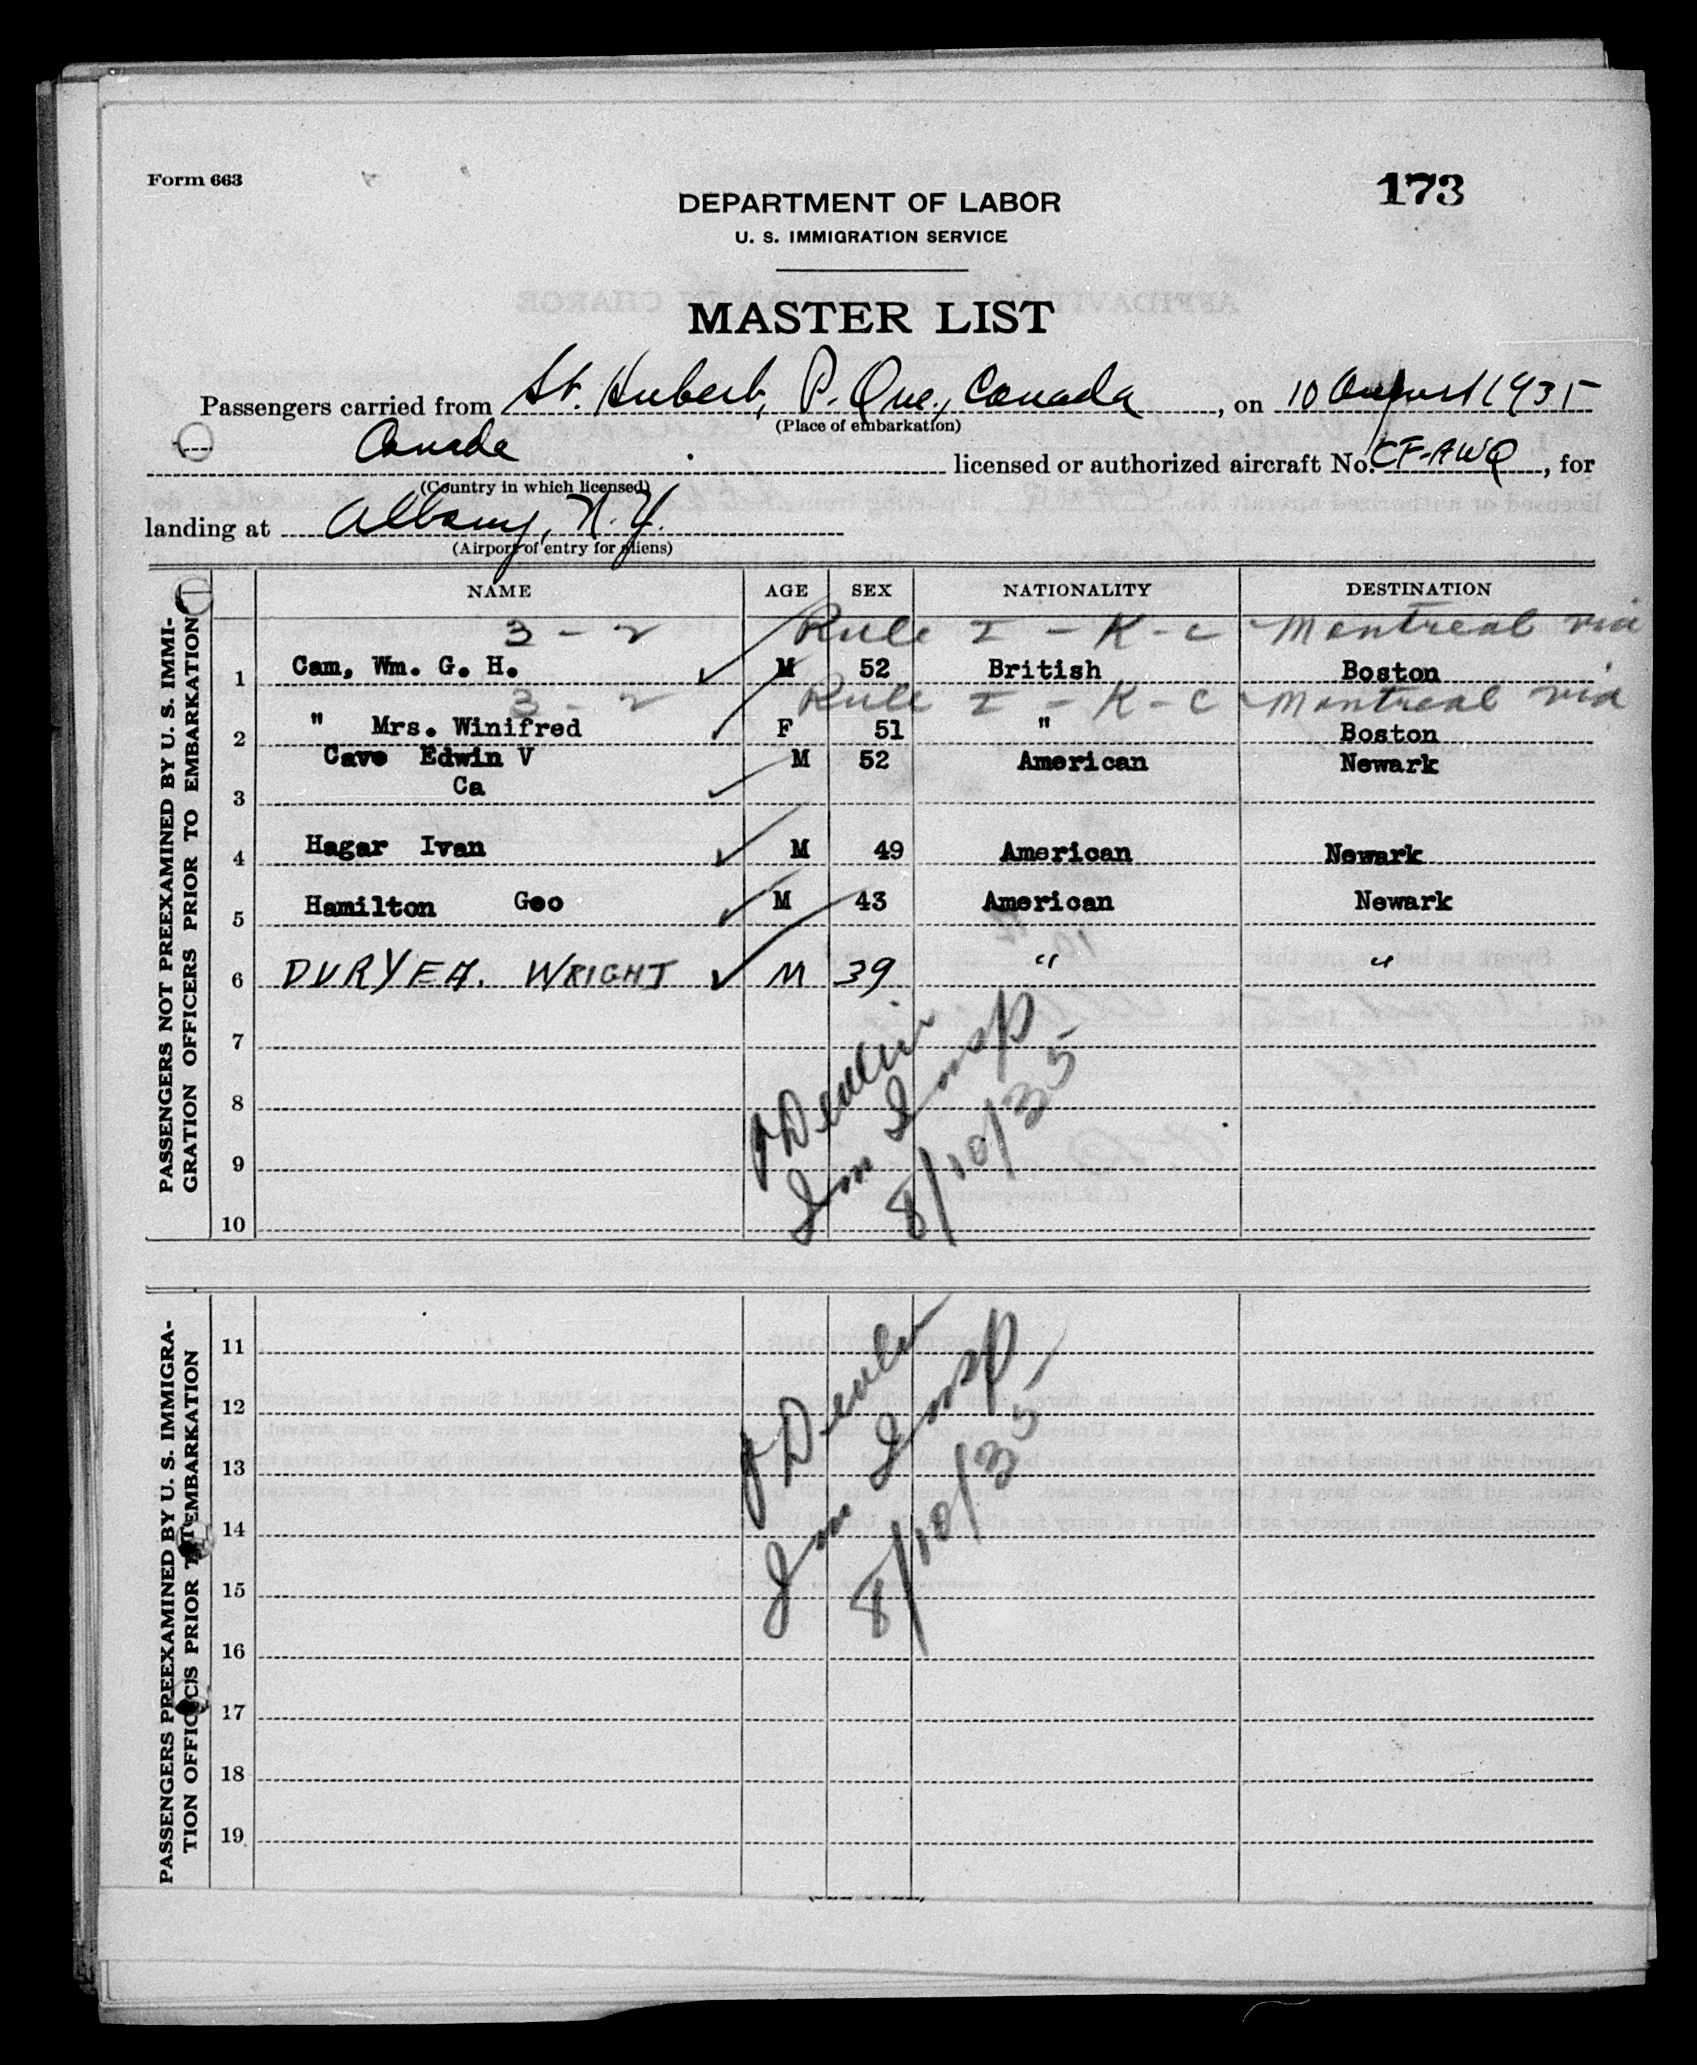 Form 663
173
DEPARTMENT OF LABOR
U. S. IMMIGRATION SERVICE
MASTER LIST
Passengers carried from St. Hubert, P. Que., Canada, on 10 August 1935
(Place of embarkation)
Canada licensed or authorized aircraft No. CF-AWQ, for
(Country in which licensed)
landing at Albany, N. Y.
(Airport of entry for aliens)
NAME AGE SEX NATIONALITY DESTINATION
3 - 2 Rule I - K - C Montreal via
1 Cam, Wm. G. H. M 52 British Boston
3 - 2 Rule I - K - C Montreal via
2 " Mrs. Winifred F 51 " Boston
Cave Edwin V M 52 American Newark
3 Ca
4 Hagar Ivan M 49 American Newark
5 Hamilton Geo M 43 American Newark
6 DURYEA. WRIGHT M 39 " "
7
8
9
10
Imm Insp
8/10/35
PASSENGERS NOT PREEXAMINED BY U. S. IMMI-
GRATION OFFICERS PRIOR TO EMBARKATION
11
12
13
14
15
16
17
18
19
Imm Insp
8/10/35
PASSENGERS PREEXAMINED BY U. S. IMMIGRA-
TION OFFICERS PRIOR TO EMBARKATION